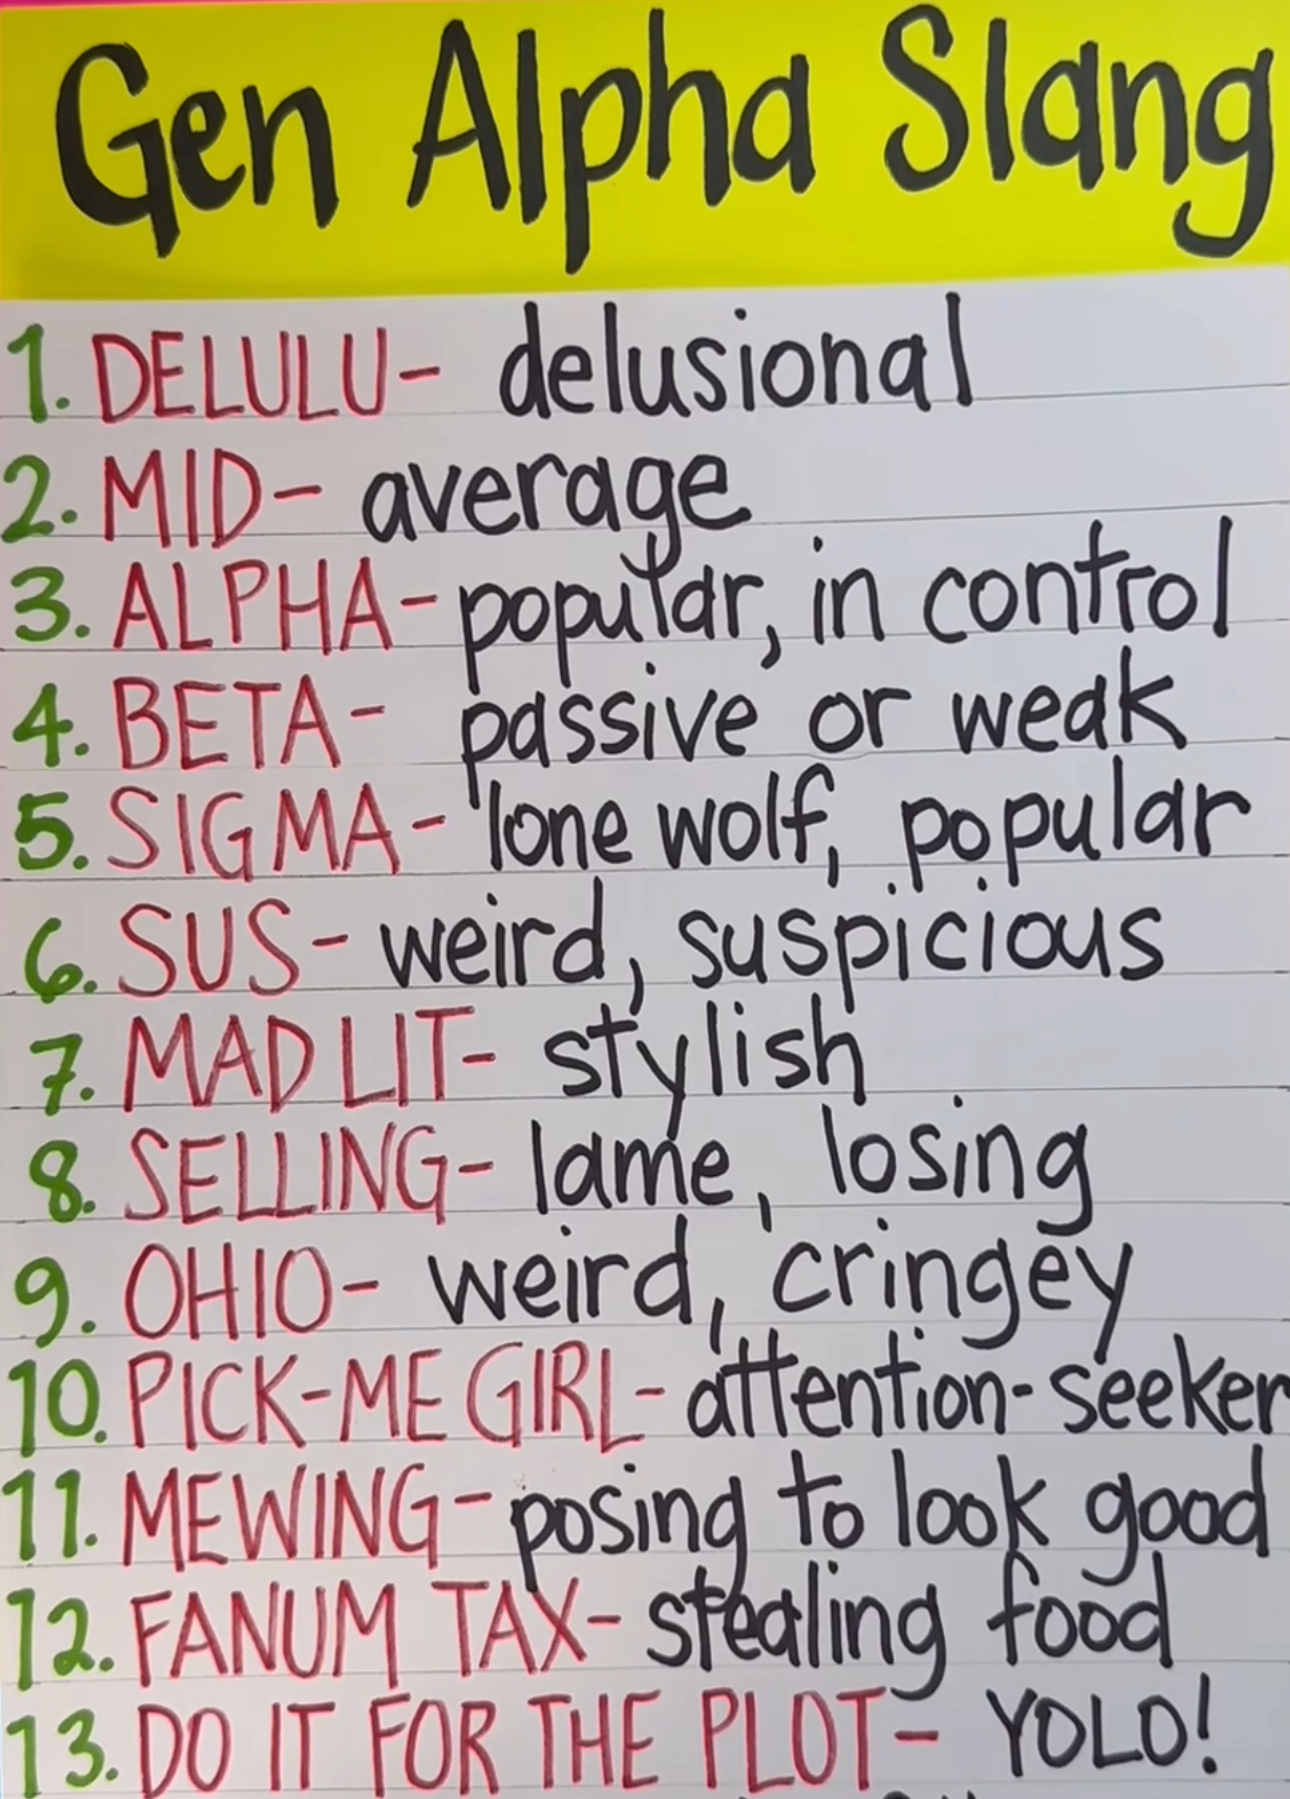 Gen Alpha Slang
1. DELULU- delusional
2. MID- average
3. ALPHA- popular, in control
4. BETA- passive or weak
5. SIGMA- lone wolf, popular
6. SUS- weird, suspicious
7. MAD LIT- stylish
8. SELLING- lame, losing
9. OHIO- weird, cringey
10. PICK-ME GIRL- attention-seeker
11. MEWING- posing to look good
12. FANUM TAX- stealing food
13. DO IT FOR THE PLOT- YOLO!